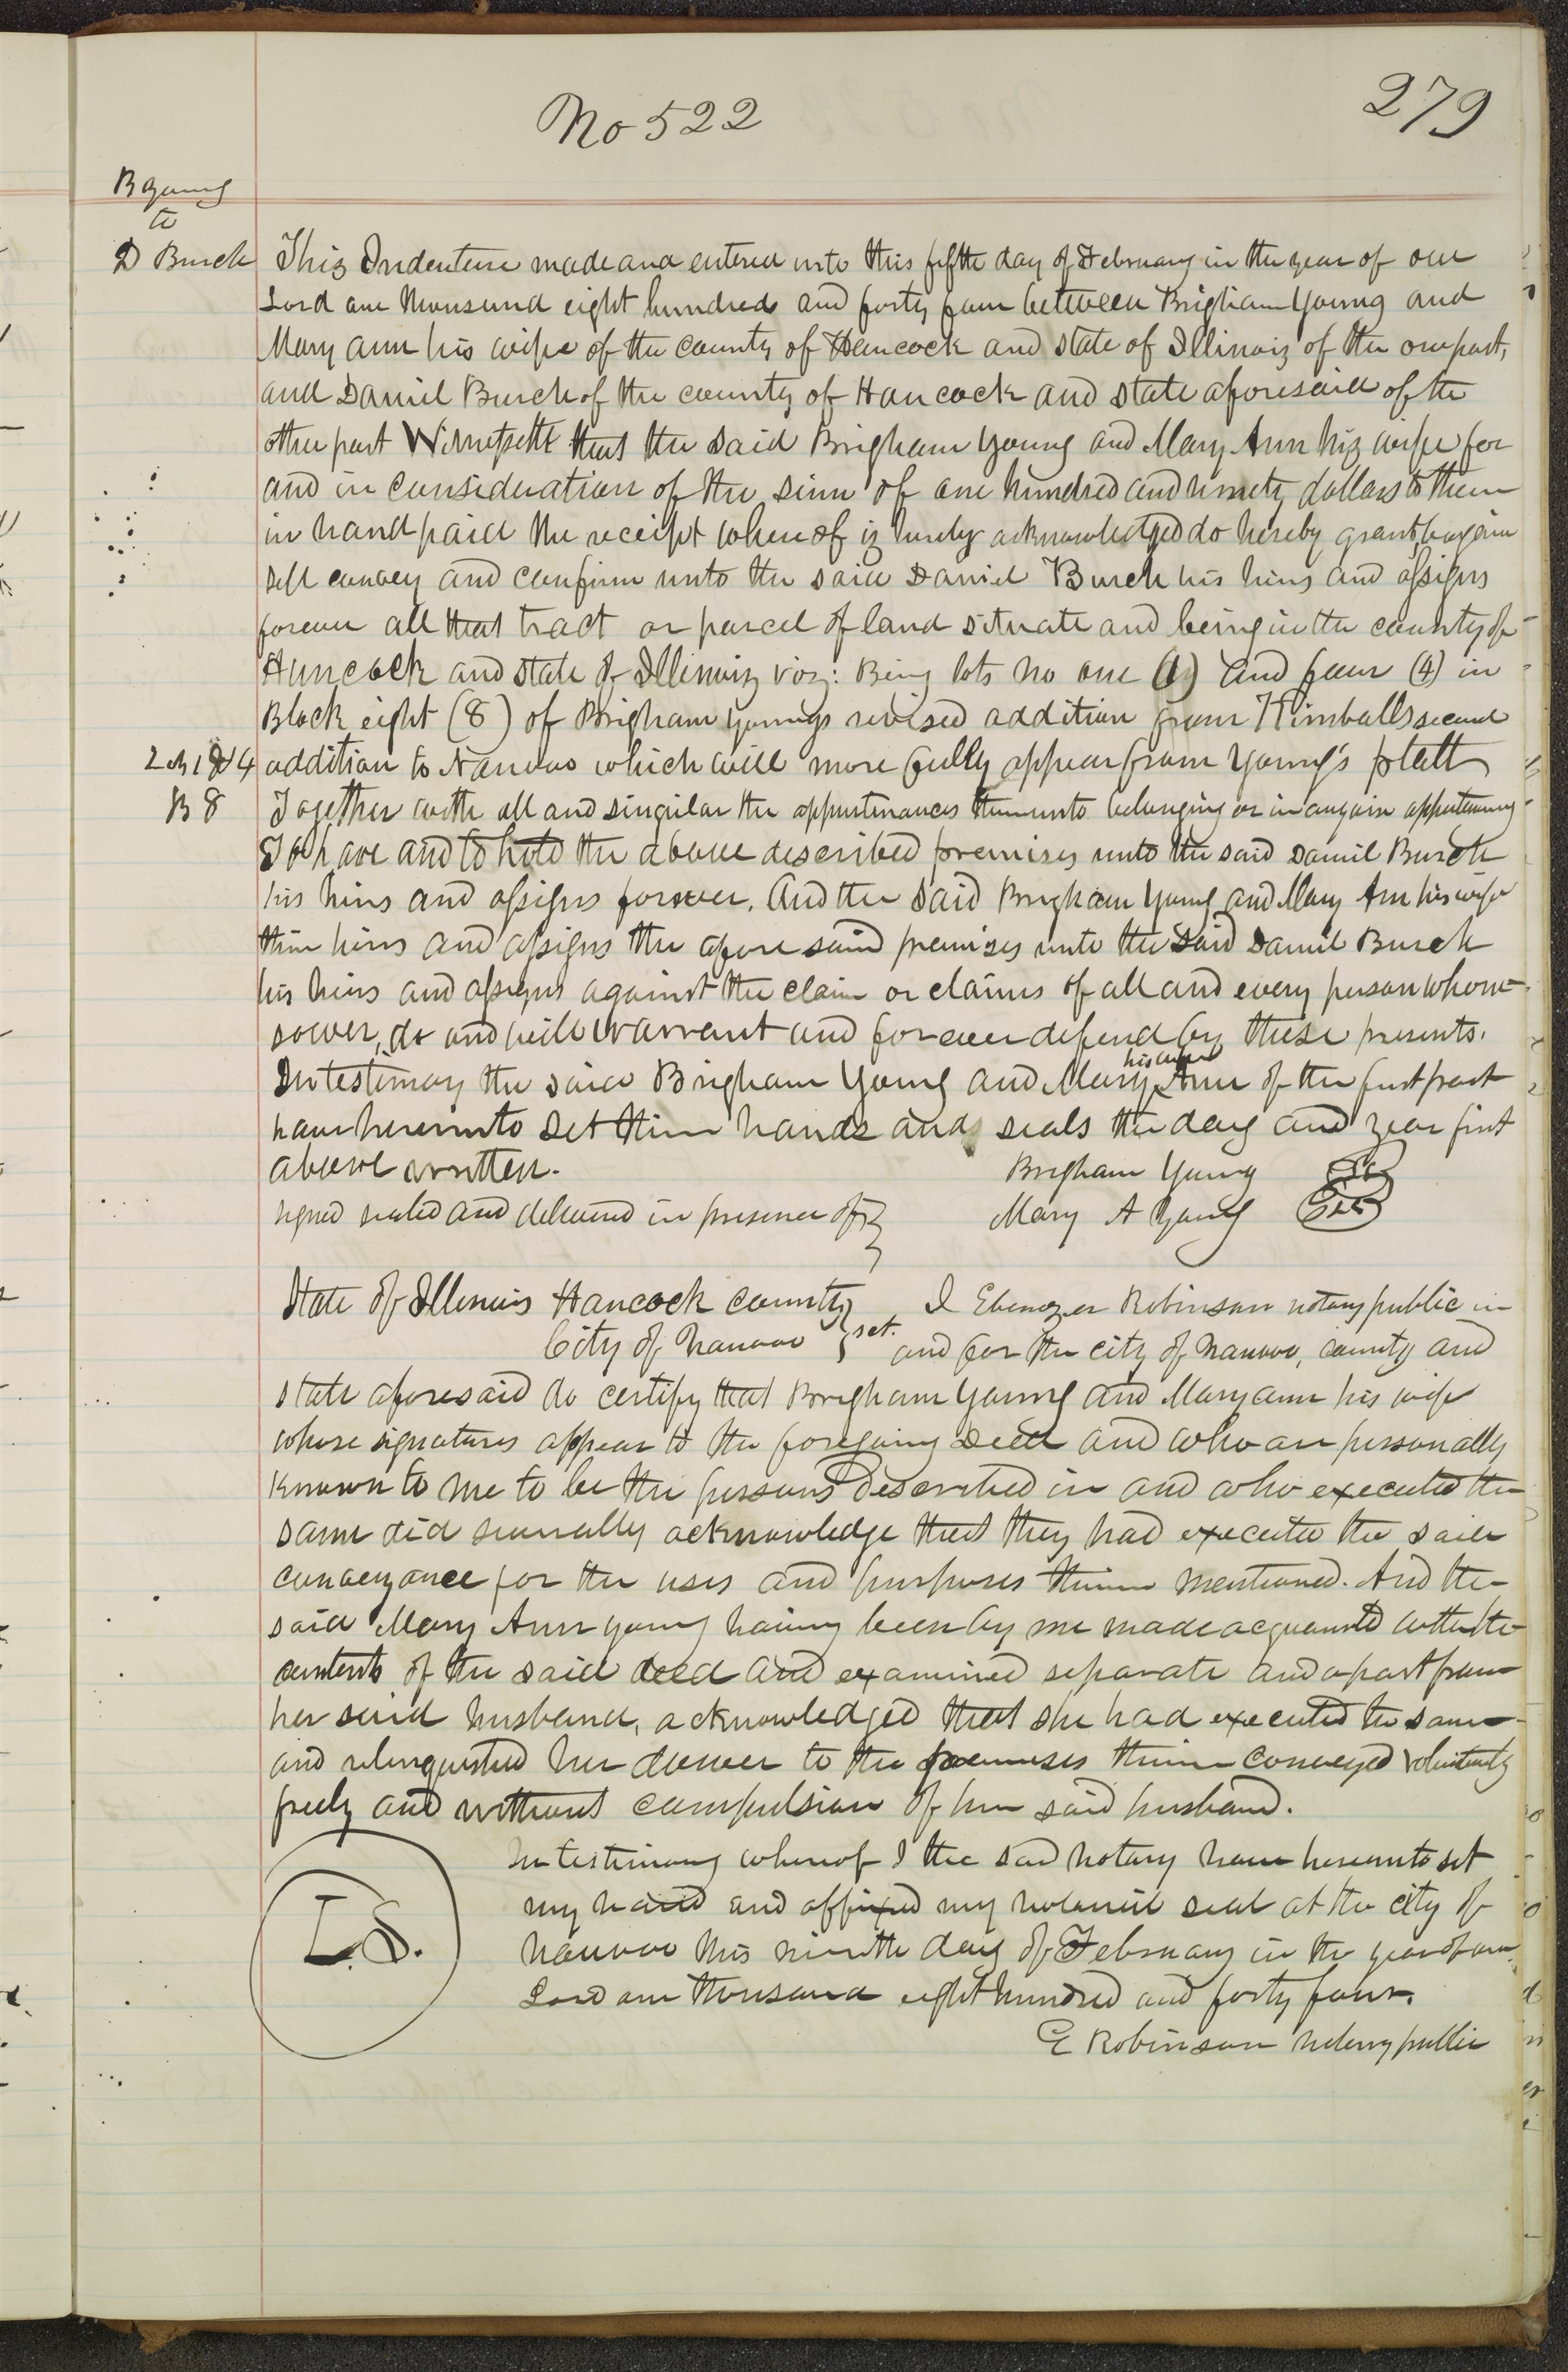 279
No 522
B Young
to
D Burch
This Indenture made and entered into this fifth day of February in the year of our
Lord one thousand eight hundred and forty four between Brigham Young and
Mary Ann his wife of the county of Hancock and state of Illinois of the one part,
and Daniel Burch of the county of Hancock and state aforesaid of the
other part Witnesseth that the said Brigham Young and Mary Ann his wife for
and in consideration of the sum of one hundred and ninety dollars to them
in hand paid the receipt whereof is hereby acknowledged do hereby grant bargain
sell convey and confirm unto the said Daniel Burch his heirs and assigns
forever all that tract or parcel of land situate and being in the county of
Hancock and state of Illinois viz: Being lots no one (1) and four (4) in
Block eight (8) of Brigham Youngs revised addition from Kimballs second
addition to Nauvoo which will more fully appear from Young's platt
L 1 & 4
B 8
Together with all and singular the appurtenances thereunto belonging or in anywise appertaining
To have and to hold the above described premises unto the said Daniel Burch
his heirs and assigns forever. And the said Brigham Young and Mary Ann his wife
their heirs and assigns the afore said premises unto the said Daniel Burch
his heirs and assigns against the claim or claims of all and every person whom-
soever, do and will warrant and forever defend by these presents.
In testimony the said Brigham Young and Mary Ann his wife of the first part
have hereunto set their hands and seals the day and year first
above written.
Brigham Young
signed sealed and delivered in presence of
Mary A Young
State of Illinois Hancock county
City of Nauvoo } sct.
I Ebenezer Robinson notary public in
and for the city of Nauvoo, county and
state aforesaid do certify that Brigham Young and Mary ann his wife
whose signatures appear to the foregoing Deed and who are personally
known to me to be the persons described in and who executed the
same did severally acknowledge that they had executed the said
conveyance for the uses and purposes therein mentioned. And the
said Mary Ann young having been by me made acquainted with the
contents of the said deed and examined separate and apart from
her said husband, acknowledged that she had executed the same
and relinquished her dower to the premises therein conveyed voluntarily
freely and without compulsion of her said husband.
In testimony whereof I the said notary have hereunto set
my hand and affixed my notarial seal at the city of
Nauvoo this ninth day of February in the year of our
Lord one thousand eight hundred and forty four.
L.S.
E Robinson notary public